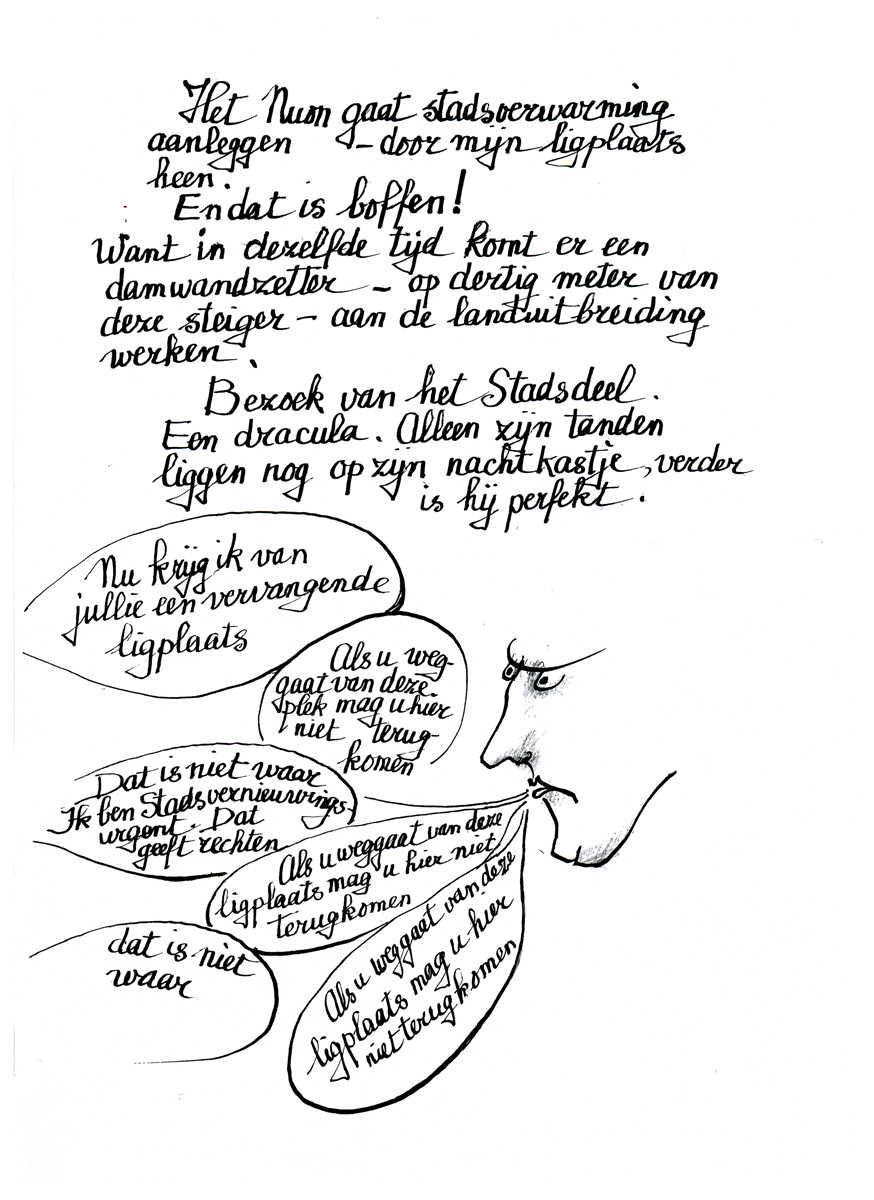 Het Nuon gaat stadsverwarming
aanleggen – door mijn ligplaats
heen.
En dat is boffen!
Want in dezelfde tijd komt er een
damwandzetter – op dertig meter van
deze steiger – aan de landuitbreiding
werken.
Bezoek van het Stadsdeel.
Een dracula. Alleen zijn tanden
liggen nog op zijn nachtkastje, verder
is hij perfekt.
Nu krijg ik van
jullie een vervangende
ligplaats
Als u weg-
gaat van deze
plek mag u hier
niet terug-
komen
Dat is niet waar
Ik ben Stadsvernieuwings
urgent. Dat
geeft rechten
Als u weggaat van deze
ligplaats mag u hier niet
terugkomen
dat is niet
waar
Als u weggaat van deze
ligplaats mag u hier
niet terugkomen